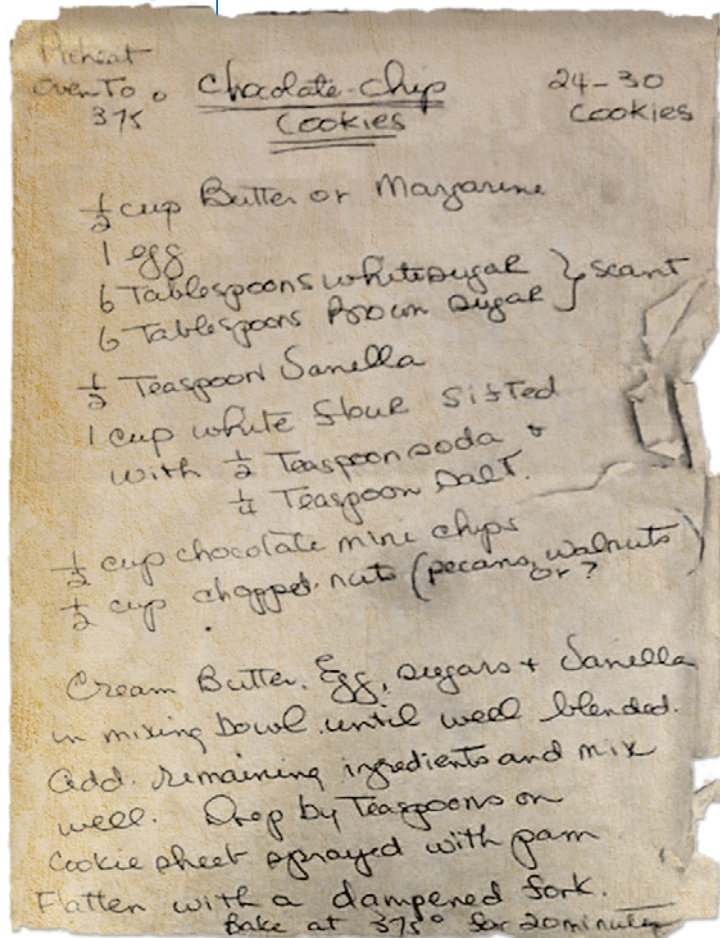 Preheat
oven To
375°
Chocolate-chip
Cookies
24-30
Cookies
1/2 cup Butter or Margarine
1 egg
6 Tablespoons white sugar } scant
6 Tablespoons Brown sugar
1/2 Teaspoon Vanilla
1 cup white flour sifted
with 1/2 Teaspoon soda &
1/4 Teaspoon Salt.
1/2 cup chocolate mini chips
1/2 cup chopped nuts (pecans, walnuts
or ?)
Cream Butter, Egg, sugars + Vanilla
in mixing bowl until well blended.
Add remaining ingredients and mix
well. Drop by Teaspoons on
Cookie sheet sprayed with pam
Flatten with a dampened fork.
Bake at 375° for 20 minutes